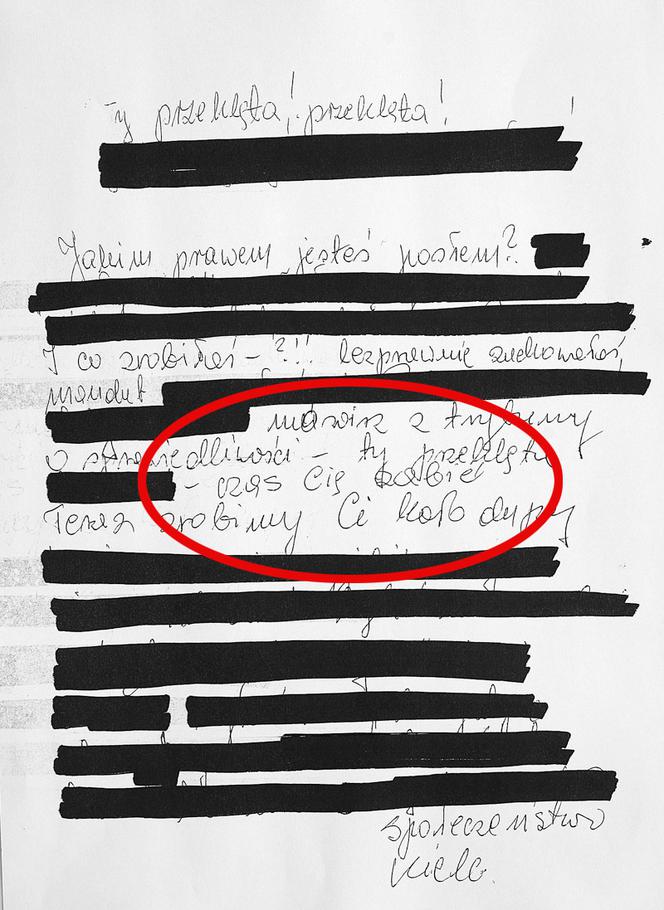 Ty przeklęta! przeklęta!
Jakim prawem jesteś posłem?
I co zrobiłaś - ?!! bezprawnie zachowałaś
mandat
mówisz z trybuny
o sprawiedliwości - ty przeklęta
- czas Cię zabić
Teraz zrobimy Ci koło dupy
społeczeństwo
Kielc.